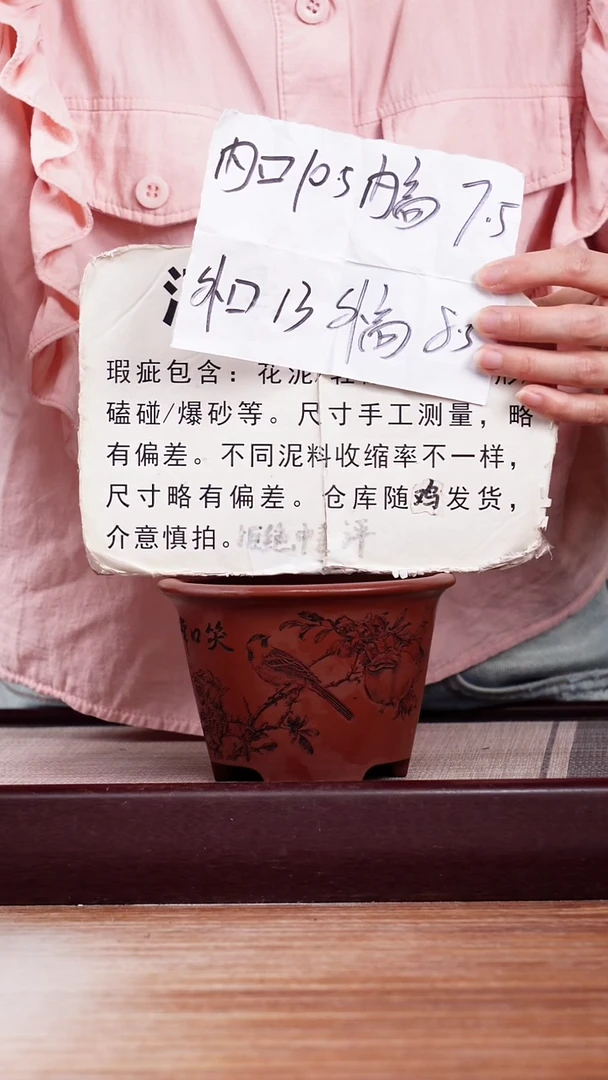 内口10.5 内高 7.5
外口 13 外高 8.5
瑕疵包含：花泥/
磕碰/爆砂等。尺寸手工测量，略
有偏差。不同泥料收缩率不一样，
尺寸略有偏差。仓库随鸡发货，
介意慎拍。
口笑